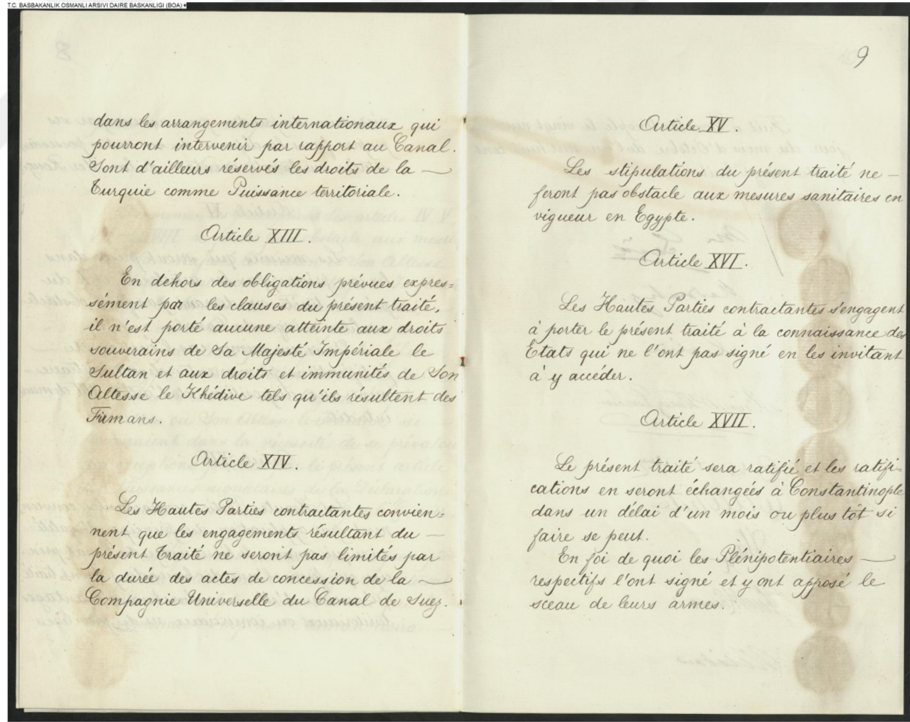 T.C. BASBAKANLIK OSMANLI ARSIVI DAIRE BASKANLIGI (BOA)
dans les arrangements internationaux qui
pourront intervenir par rapport au Canal.
Sont d'ailleurs réservés les droits de la —
Turquie comme Puissance territoriale.
Article XIII.
En dehors des obligations prévues expres=
sément par les clauses du présent traité,
il n'est porté aucune atteinte aux droits
souverains de Sa Majesté Impériale le
Sultan et aux droits et immunités de Son
Altesse le Khédive tels qu'ils résultent des
Firmans.
Article XIV.
Les Hautes Parties contractantes convien=
nent que les engagements résultant du —
présent Traité ne seront pas limités par
la durée des actes de concession de la —
Compagnie Universelle du Canal de Suez.
9
Article XV.
Les stipulations du présent traité ne —
feront pas obstacle aux mesures sanitaires en
vigueur en Egypte.
Article XVI.
Les Hautes Parties contractantes s'engagent
à porter le présent traité à la connaissance des
Etats qui ne l'ont pas signé en les invitant
à y accéder.
Article XVII.
Le présent traité sera ratifié et les ratifi-
cations en seront échangées à Constantinople
dans un délai d'un mois ou plus tôt si
faire se peut.
En foi de quoi les Plénipotentiaires —
respectifs l'ont signé et y ont apposé le
sceau de leurs armes.